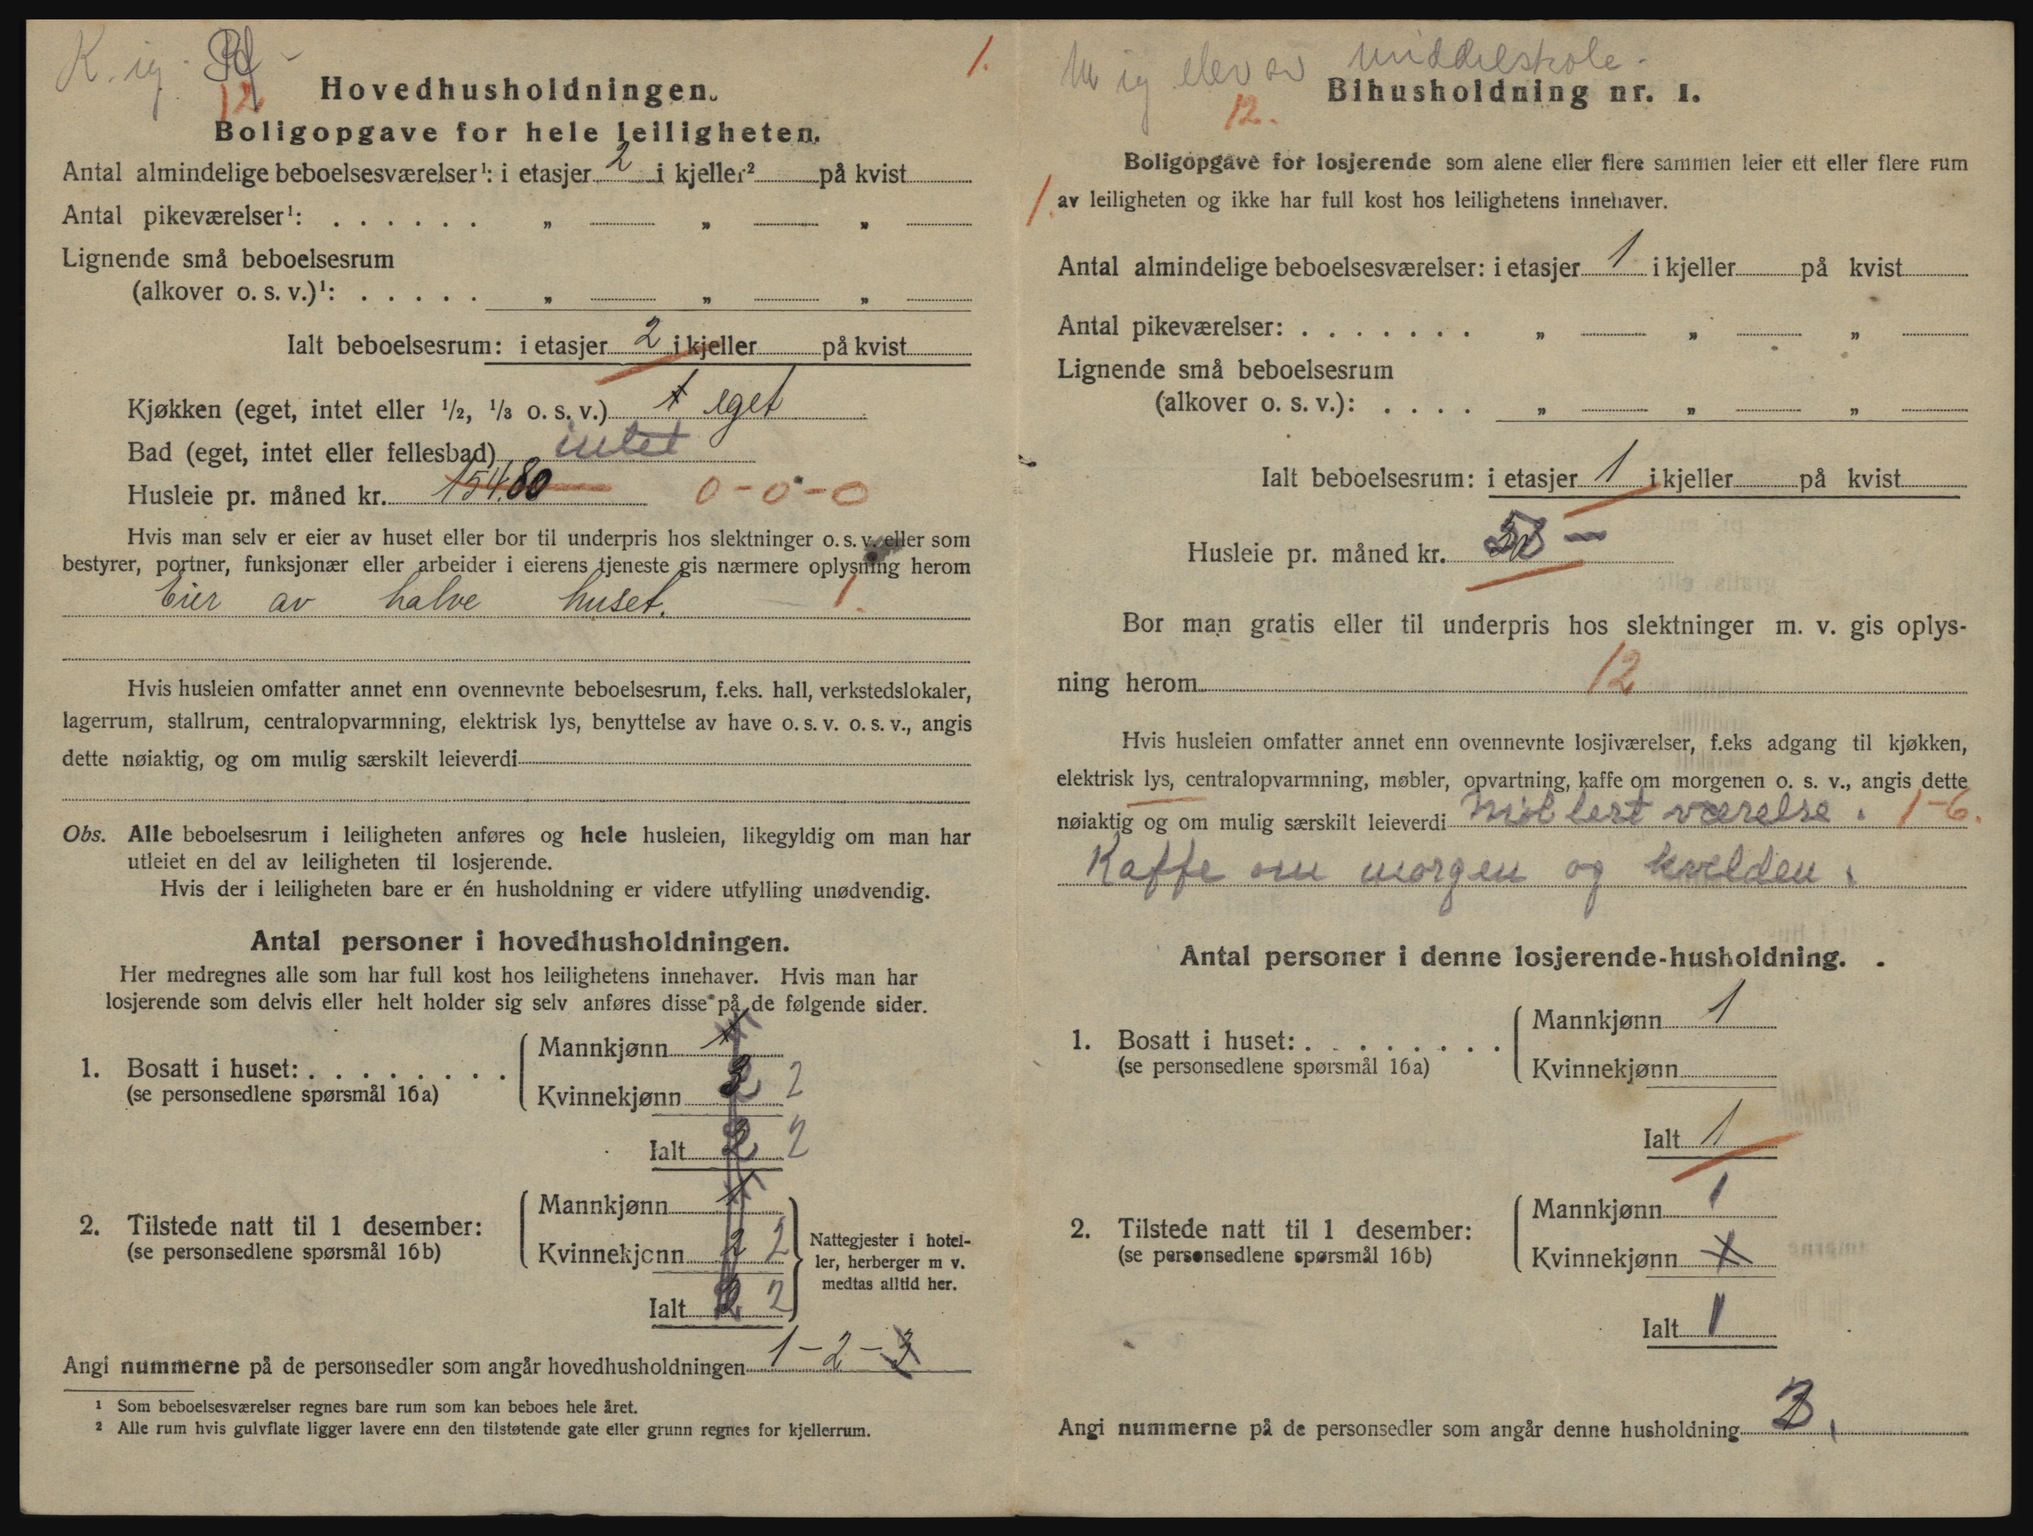 K. ig.
12
1.
Hovedhusholdningen.
Boligopgave for hele leiligheten.
Antal almindelige beboelsesværelser¹: i etasjer 2 i kjeller² på kvist
Antal pikeværelser¹: . . . . . . „ „ „
Lignende små beboelsesrum
(alkover o. s. v.)¹: . . . . . „ „ „
Ialt beboelsesrum: i etasjer 2 i kjeller på kvist
Kjøkken (eget, intet eller 1/2, 1/3 o. s. v.) 1 eget
Bad (eget, intet eller fellesbad) intet
Husleie pr. måned kr. 154.80 0-0-0
Hvis man selv er eier av huset eller bor til underpris hos slektninger o. s. v. eller som
bestyrer, portner, funksjonær eller arbeider i eierens tjeneste gis nærmere oplysning herom
Eier av halve huset. 1.
Hvis husleien omfatter annet enn ovennevnte beboelsesrum, f.eks. hall, verkstedslokaler,
lagerrum, stallrum, centralopvarmning, elektrisk lys, benyttelse av have o. s. v. o. s. v., angis
dette nøiaktig, og om mulig særskilt leieverdi
Obs. Alle beboelsesrum i leiligheten anføres og hele husleien, likegyldig om man har
utleiet en del av leiligheten til losjerende.
Hvis der i leiligheten bare er én husholdning er videre utfylling unødvendig.
Antal personer i hovedhusholdningen.
Her medregnes alle som har full kost hos leilighetens innehaver. Hvis man har
losjerende som delvis eller helt holder sig selv anføres disse på de følgende sider.
1. Bosatt i huset: . . . . . . . .
(se personsedlene spørsmål 16a)
Mannkjønn 1
Kvinnekjønn 2
Ialt 2
2. Tilstede natt til 1 desember:
(se personsedlene spørsmål 16b)
Mannkjønn 1
Kvinnekjønn 2 2
Ialt 2
Nattegjester i hotel-
ler, herberger m v.
medtas alltid her.
Angi nummerne på de personsedler som angår hovedhusholdningen 1-2-3
¹ Som beboelsesværelser regnes bare rum som kan beboes hele året.
² Alle rum hvis gulvflate ligger lavere enn den tilstøtende gate eller grunn regnes for kjellerrum.
ig elev av middelskole.
12.
Bihusholdning nr. 1.
Boligopgave for losjerende som alene eller flere sammen leier ett eller flere rum
1. av leiligheten og ikke har full kost hos leilighetens innehaver.
Antal almindelige beboelsesværelser: i etasjer 1 i kjeller på kvist
Antal pikeværelser: . . . . . . . „ „ „
Lignende små beboelsesrum
(alkover o. s. v.): . . . . „ „ „
Ialt beboelsesrum: i etasjer 1 i kjeller på kvist
Husleie pr. måned kr.
Bor man gratis eller til underpris hos slektninger m. v. gis oplys-
ning herom 12
Hvis husleien omfatter annet enn ovennevnte losjiværelser, f.eks adgang til kjøkken,
elektrisk lys, centralopvarmning, møbler, opvartning, kaffe om morgenen o. s. v., angis dette
nøiaktig og om mulig særskilt leieverdi Møblert værelse. 1-6.
Kaffe om morgen og kvelden.
Antal personer i denne losjerende-husholdning.
1. Bosatt i huset: . . . . . . . .
(se personsedlene spørsmål 16a)
Mannkjønn 1
Kvinnekjønn
Ialt 1
2. Tilstede natt til 1 desember:
(se personsedlene spørsmål 16b)
Mannkjønn 1
Kvinnekjønn 1
Ialt 1
Angi nummerne på de personsedler som angår denne husholdning 3